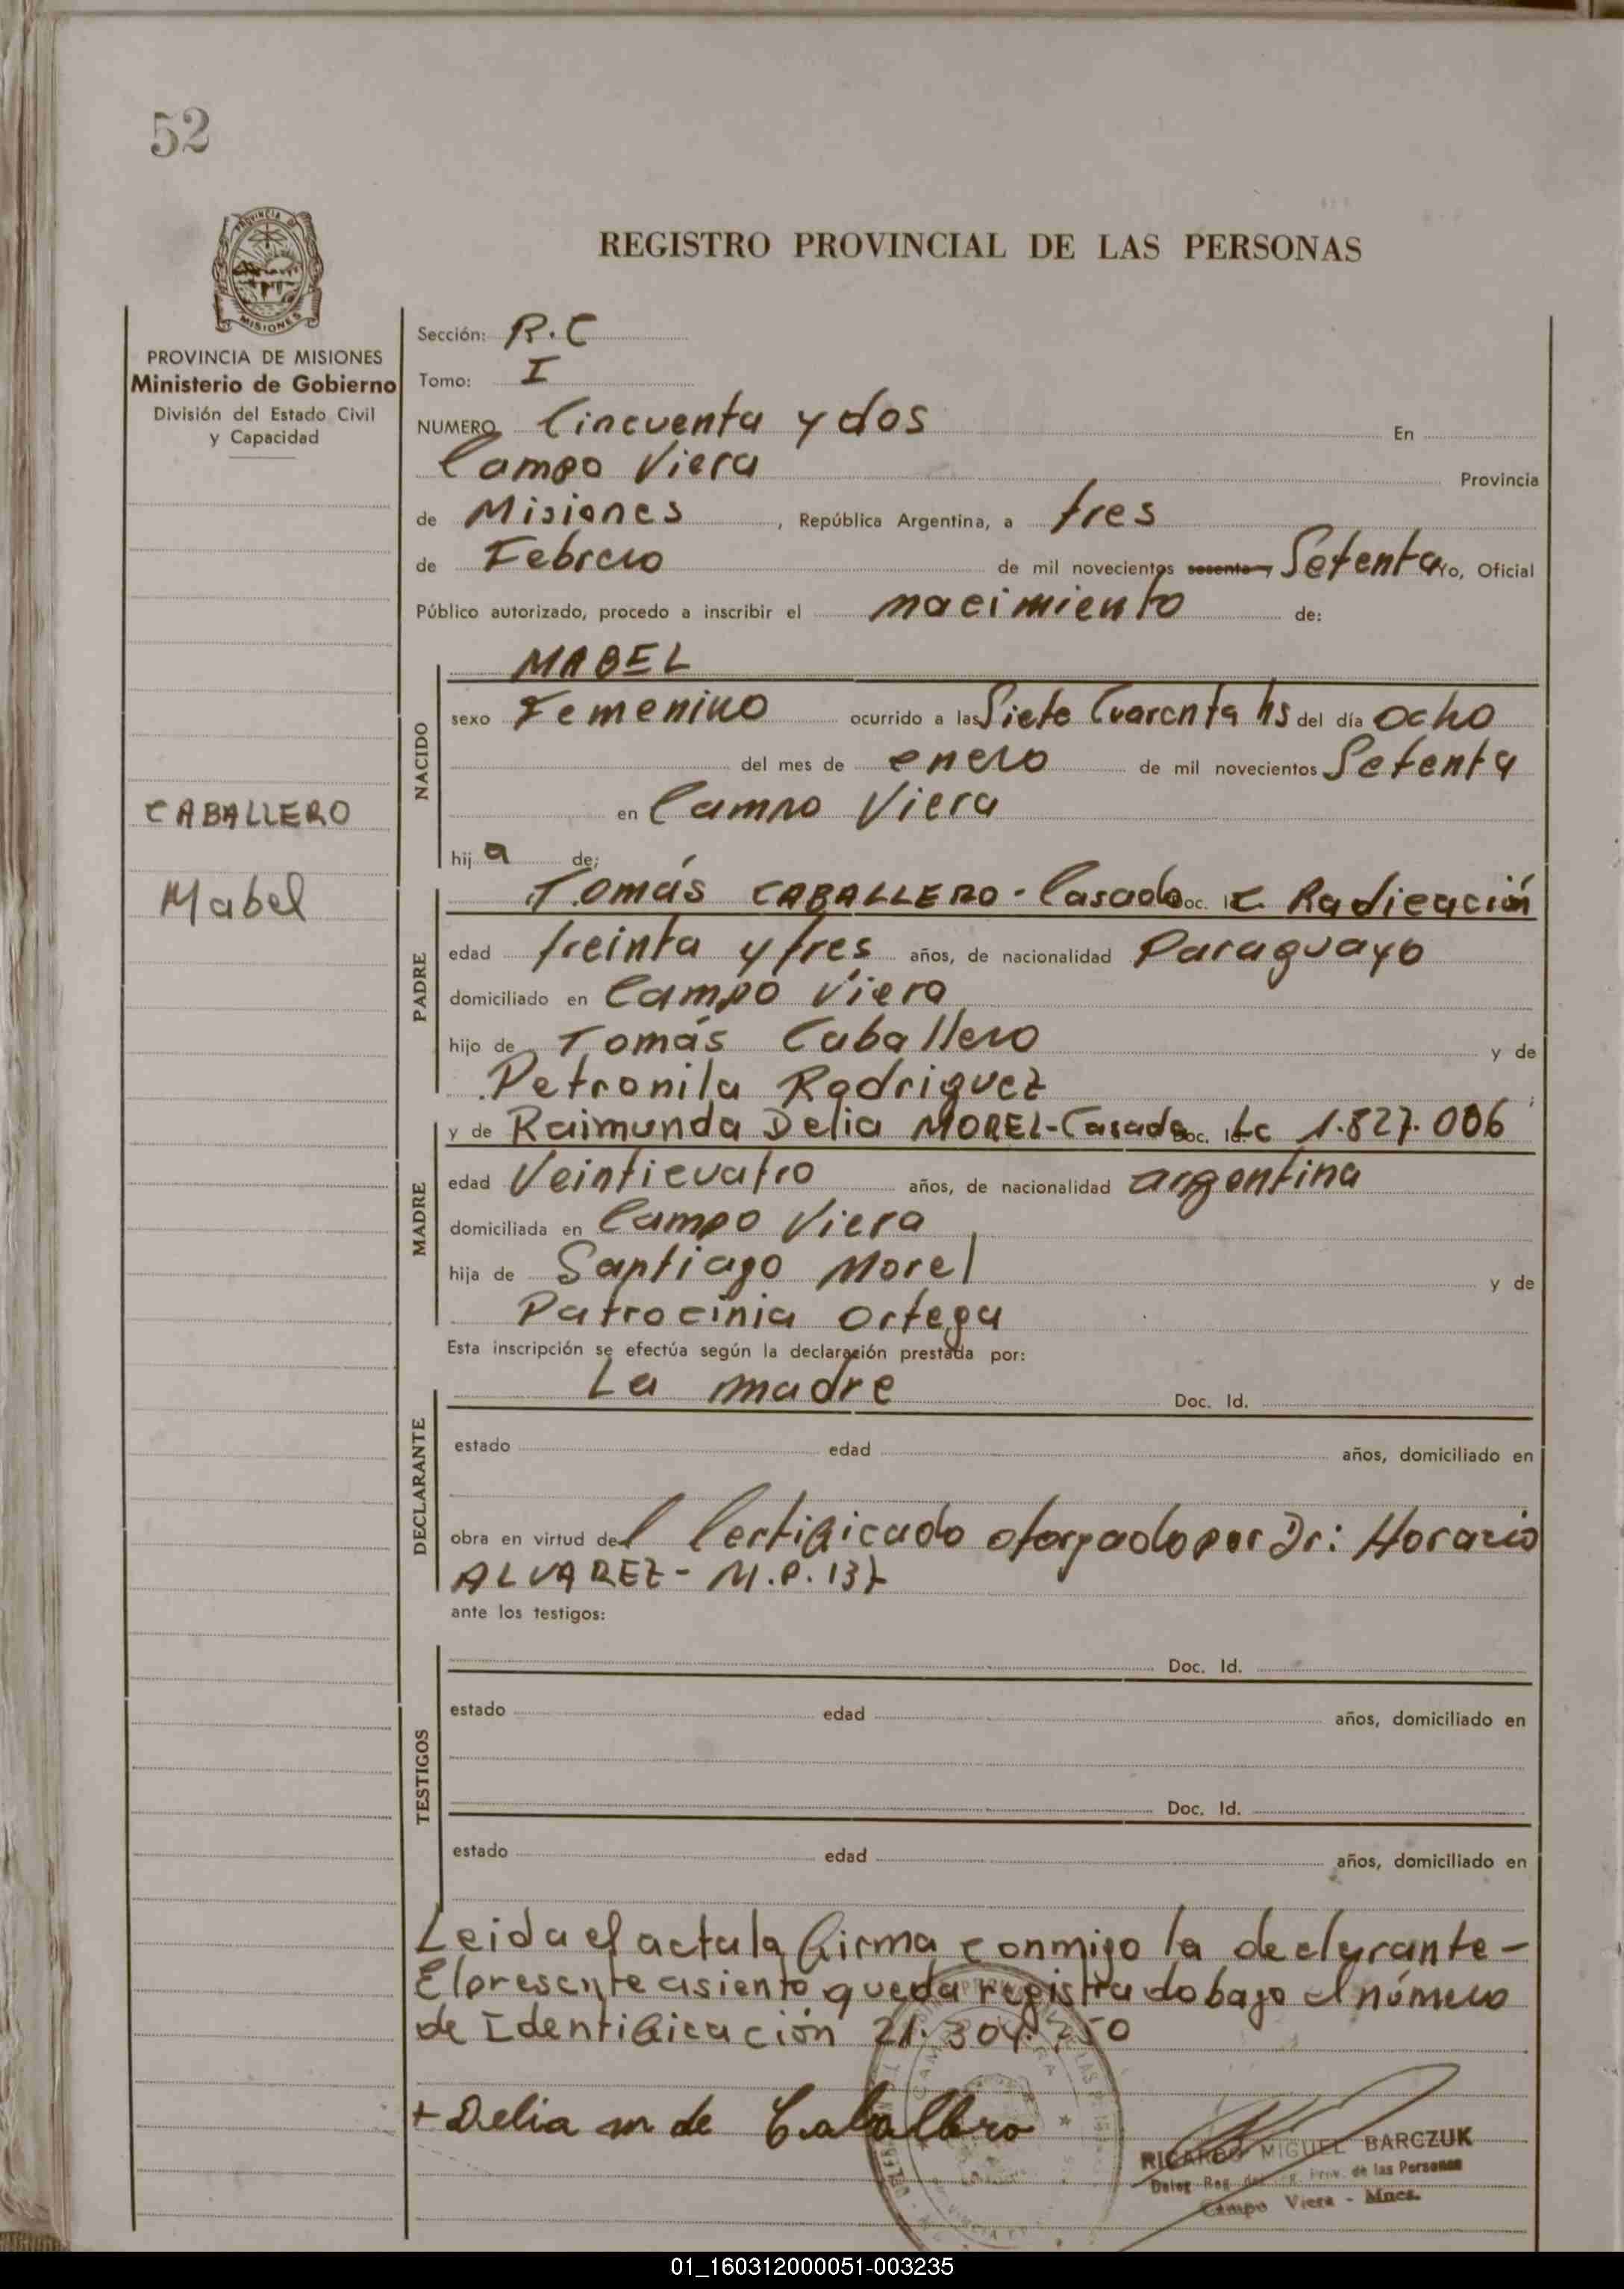 52
REGISTRO PROVINCIAL DE LAS PERSONAS
PROVINCIA DE
MISIONES
PROVINCIA DE MISIONES
Ministerio de Gobierno
División del Estado Civil
y Capacidad
CABALLERO
Mabel
Sección: R.C
Tomo: I
NUMERO Cincuenta y dos En
Campo Viera Provincia
de Misiones, República Argentina, a tres
de Febrero de mil novecientos sesenta y Setenta Yo, Oficial
Público autorizado, procedo a inscribir el nacimiento de:
MABEL
NACIDO
sexo Femenino ocurrido a las Siete Cuarenta hs del día ocho
del mes de enero de mil novecientos Setenta
en Campo Viera
hija de:
PADRE
Tomás CABALLERO - Casado Doc. Id. Radicación
edad treinta y tres años, de nacionalidad Paraguayo
domiciliado en Campo Viera
hijo de Tomás Caballero y de
Petronila Rodriguez
MADRE
y de Raimunda Delia MOREL - Casada Doc. Id. LC 1.827.006
edad Veinticuatro años, de nacionalidad argentina
domiciliada en Campo Viera
hija de Santiago Morel y de
Patrocinia Ortega
Esta inscripción se efectúa según la declaración prestada por:
DECLARANTE
La madre Doc. Id.
estado edad años, domiciliado en
obra en virtud del Certificado otorgado por Dr: Horacio
ALVAREZ - M.P. 137
ante los testigos:
TESTIGOS
Doc. Id.
estado edad años, domiciliado en
Doc. Id.
estado edad años, domiciliado en
Leida el acta la firma conmigo la declarante -
El presente asiento queda registrado bajo el número
de Identificación 21.304.750
+ Delia m de Caballero
RICARDO MIGUEL BARCZUK
Deleg. Reg. Prov. de las Personas
Campo Viera - Mnes.
01_160312000051-003235